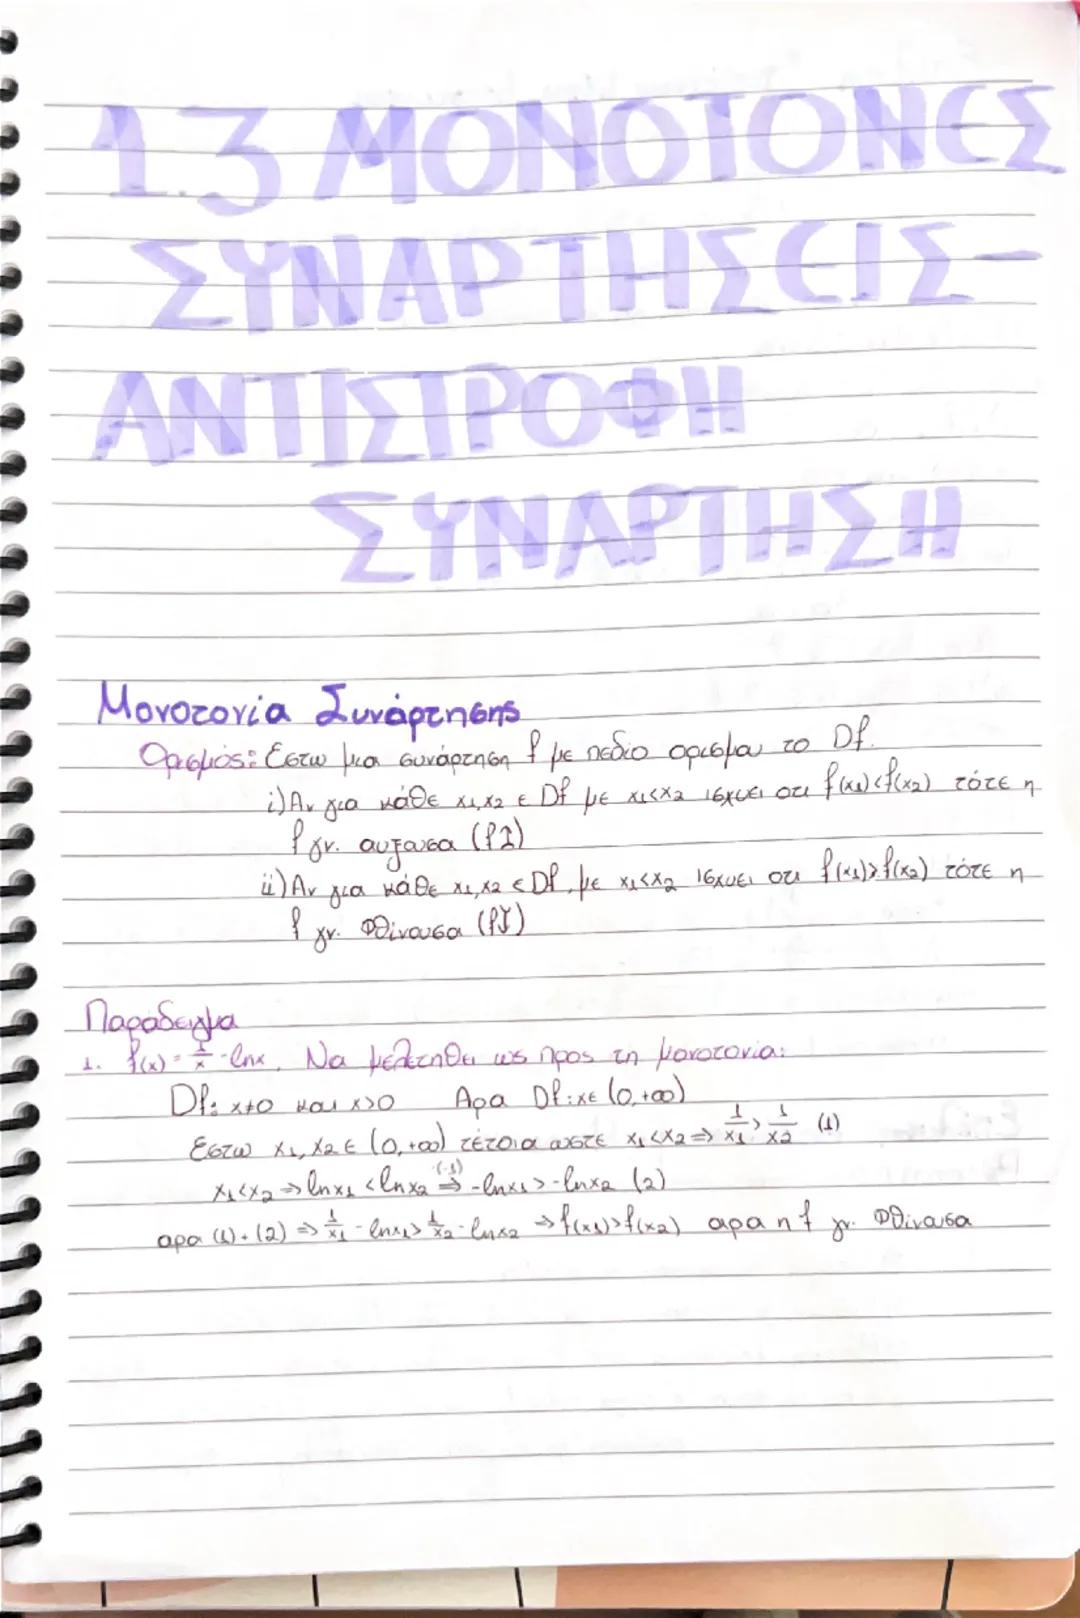 1.3 ΜΟΝΟΤΟΝΕΣ
ΣΥΝΑΡΤΗΣΕΙΣ-
ΑΝΤΙΣΤΡΟΦΗ
ΣΥΝΑΡΤΗΣΗ
Μονοτονία Συνάρτησης
Ορισμός: Εστω μια συνάρτηση f με πεδιο ορισμου το Df.
i) Αν για κάθε x1, x2 ∈ Df με x1<x2 ισχυει οτι f(x1)<f(x2) τότε η
f γν. αυξουσα (f↑)
ii) Αν για κάθε x1, x2 ∈ Df, με x1<x2 ισχυει οτι f(x1)>f(x2) τότε η
f γν. Φθίνουσα (f↓)
Παράδειγμα
1. f(x) = 1/x - lnx. Να μελετηθει ως προς τη μονοτονια:
Df: x≠0 και x>0 Αρα Df: x∈ (0,+∞)
Εστω x1, x2 ∈ (0,+∞) τέτοια ωστε x1<x2 ⇒ 1/x1 > 1/x2 (1)
x1<x2 ⇒ lnx1 < lnx2 (-1)⇒ -lnx1 > -lnx2 (2)
αρα (1)+(2) ⇒ 1/x1 - lnx1 > 1/x2 - lnx2 ⇒ f(x1)>f(x2) αρα η f γν. Φθίνουσα